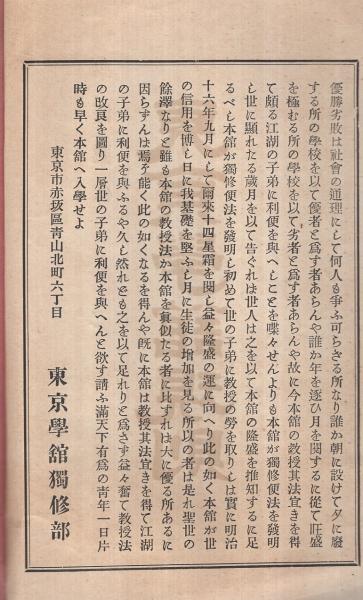 優勝劣敗は社會の通理にして何人も爭ふ可らさる所なり誰か朝に設けて夕に廢
する所の學校を以て優者と爲す者あらんや誰か年を逐ひ月を閲するに從て旺盛
を極むる所の學校を以て劣者と爲す者あらんや故に今本舘の教授其法宜きを得
て頗る江湖の子弟に利便を與へしことを喋々せんよりも本舘が獨修便法を發明
し世に顯れたる歲月を以て告ぐれは世人は之を以て本舘の隆盛を推知するに足
るべし本舘が獨修便法を發明し初めて世の子弟に教授の勞を取りしは實に明治
十六年九月にして爾來十四星霜を閲し益々隆盛の運に向へり此の如く本舘が世
の信用を博し日に我基礎を堅ふし月に生徒の增加を見る所以の者は是れ聖世の
餘澤なりと雖も本舘の教授法か本舘を眞似たる者に比すれは大に優る所あるに
因らずんは焉ぞ能く此の如くなるを得んや旣に本舘は教授其法宜きを得て江湖
の子弟に利便を與ふるや久し然れとも之を以て足れりと爲さず益々奮て教授法
の改良を圖り一層世の子弟に利便を與へんと欲す請ふ滿天下有爲の靑年一日片
時も早く本舘へ入學せよ
東京市赤坂區靑山北町六丁目
東京學舘獨修部